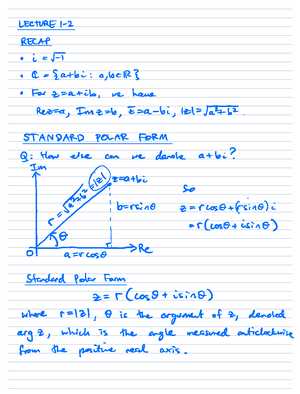 LECTURE 1-2
RECAP
• i = √-1
• ℂ = {a+bi : a,b∈ℝ}
• For z = a+ib, we have
Re z = a, Im z = b, z̄ = a-bi, |z| = √a²+b².
STANDARD POLAR FORM
Q: How else can we denote a+bi?
Im
r = √a²+b² = |z|
z = a+bi
b = r sinθ
θ
O
a = r cosθ
Re
So
z = r cosθ + (r sinθ) i
= r (cosθ + i sinθ)
Standard Polar Form
z = r (cosθ + i sinθ)
where r = |z|, θ is the argument of z, denoted
arg z, which is the angle measured anticlockwise
from the positive real axis.